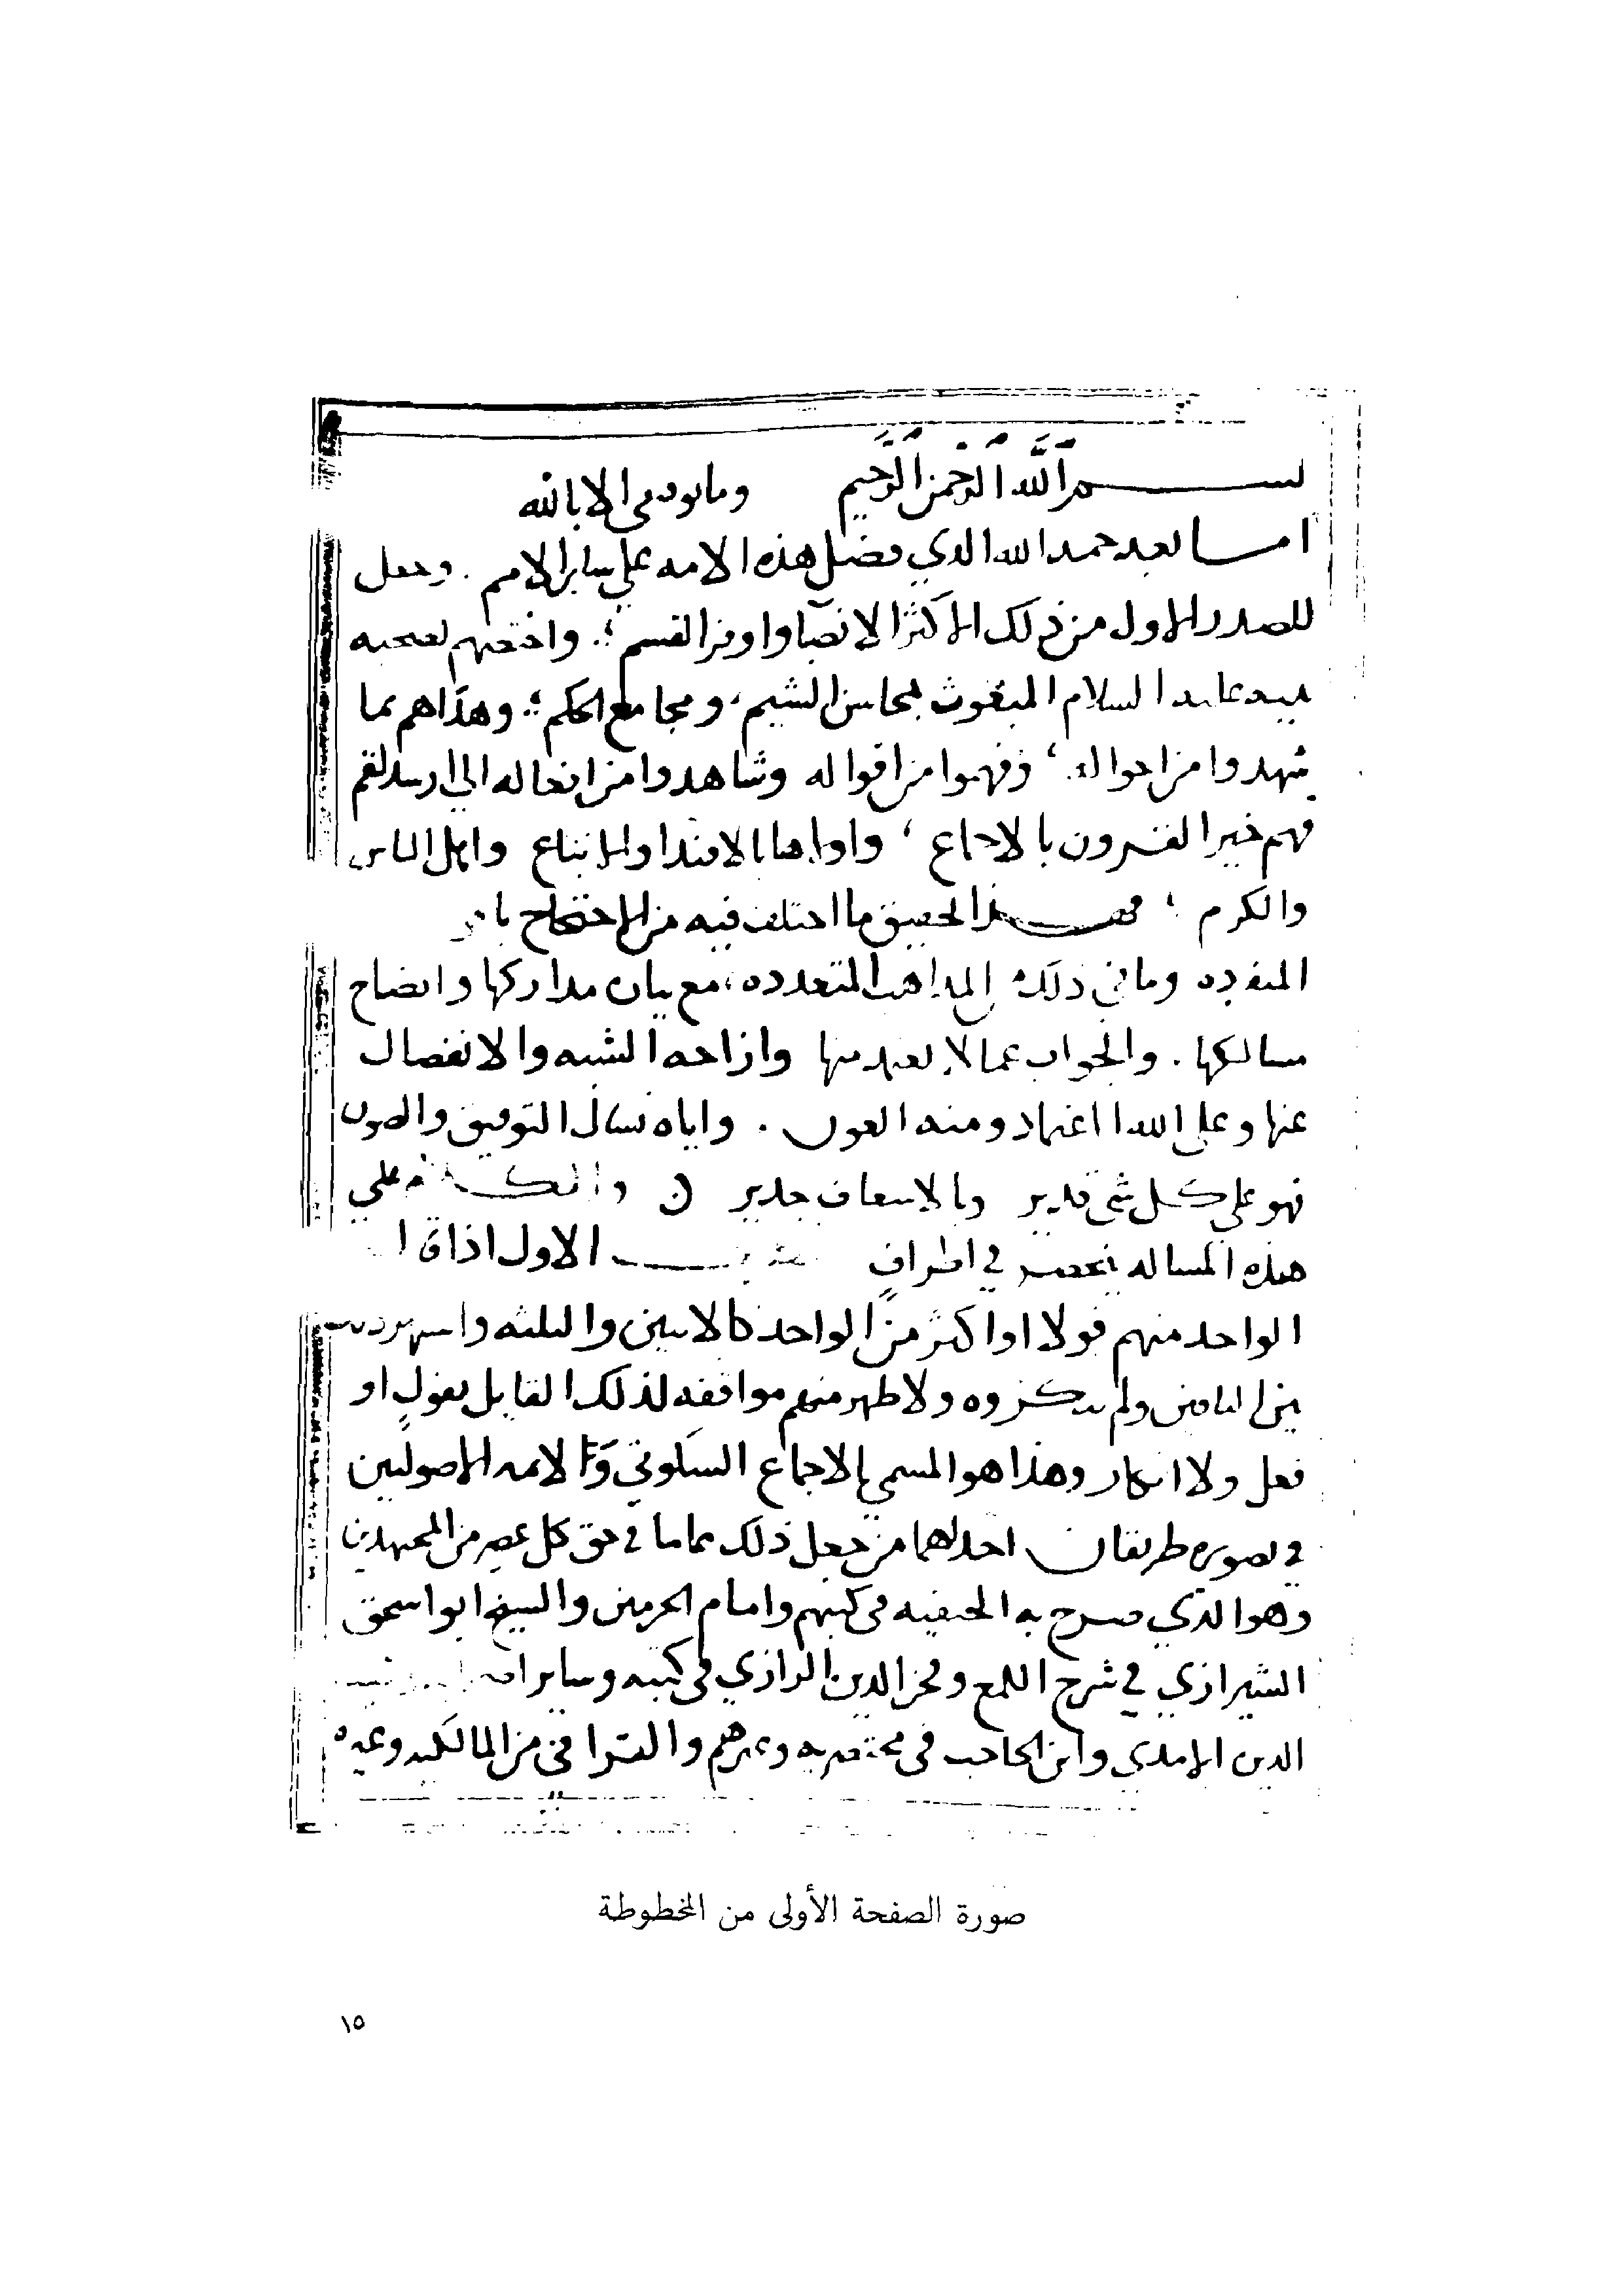 بسم الله الرحمن الرحيم وما توفيقي الا بالله
اما بعد حمد الله الذي فضل هذه الامه علي ساير الامم . وجعل
للصدر الاول من ذلك الاكثر الانصبا واوفر القسم . واختصهم بصحبه
نبيه عليه السلام المبعوث بمحاسن الشيم ، ومجامع الحكم . وهداهم بما
شهدوا من احواله ، وفهموا من اقواله وشاهدوا من افعاله الي ارشد لقم
فهم خير القرون بالاجماع ، واولاها بالاقتدا والاتباع واهل الباس
والكرم ، فهذا تحقيق ما اختلف فيه من الاحتجاج
وما في ذلك المذاهب المتعدده ، مع بيان مداركها وايضاح
مسالكها . والجواب عما لا يعتمد منها وازاحه الشبه والانفصال
عنها وعلي الله اعتماد ومنه العون . واياه نسال التوفيق والصون
فهو علي كل شي قدير وبالاسعاف جدير والكلام علي
هذه المساله ينحصر في اطراف الاول اذا قال
الواحد منهم قولا او اكثر من الواحد كالاثنين والثلثه واشتهر ذلك
بين الباقين ولم ينكروه ولا ظهر منهم موافقه لذلك القايل بقول او
فعل ولا انكار وهذا هو المسمي بالاجماع السكوتي والايمه الاصوليين
في تصويره طريقان احدهما من جعل ذلك عاما في حق كل عصر من المجتهدين
وهو الذي صرح به الحنفيه في كتبهم وامام الحرمين والشيخ ابو اسحق
الشيرازي في شرح اللمع وفخر الدين الرازي في كتبه وساير
الدين الامدي وابن الحاجب في مختصريه وغيرهم والقرافي من المالكيه وغيره
صورة الصفحة الأولى من المخطوطة
١٥